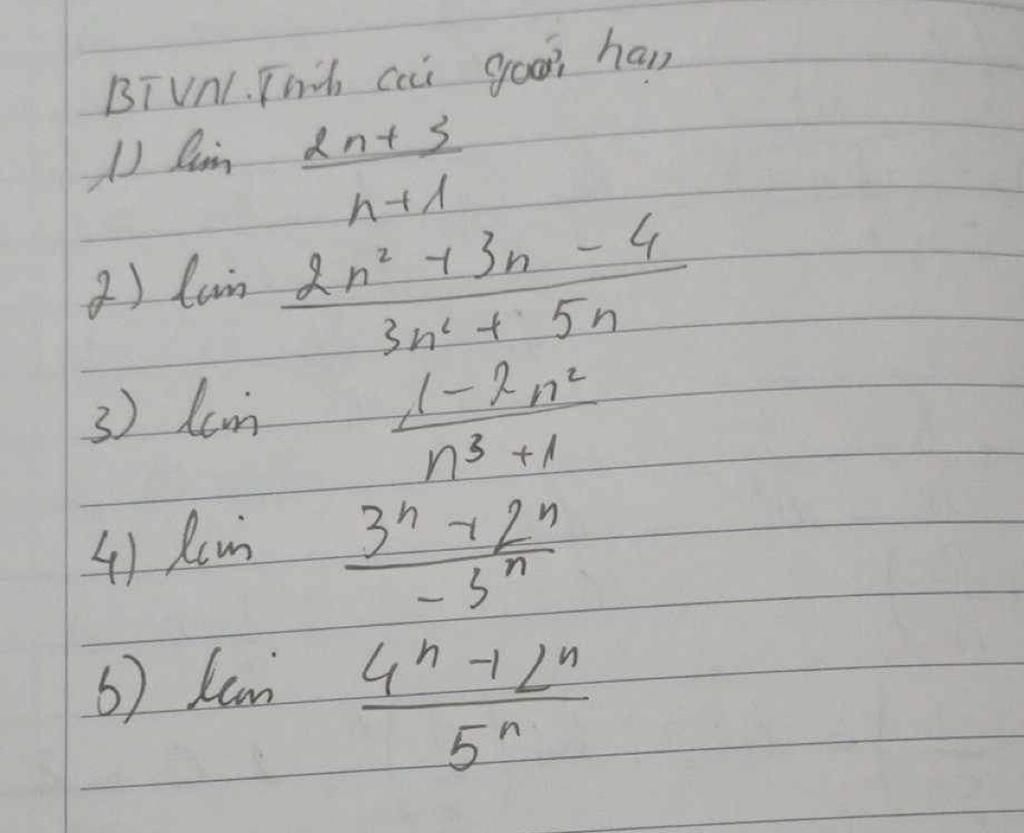 BTVN. Tính các giới hạn
1) lim (2n + 3)/(n + 1)
2) lim (2n² + 3n - 4)/(3n² + 5n)
3) lim (1 - 2n²)/(n³ + 1)
4) lim (3ⁿ + 2ⁿ)/(-3ⁿ)
5) lim (4ⁿ + 2ⁿ)/(5ⁿ)